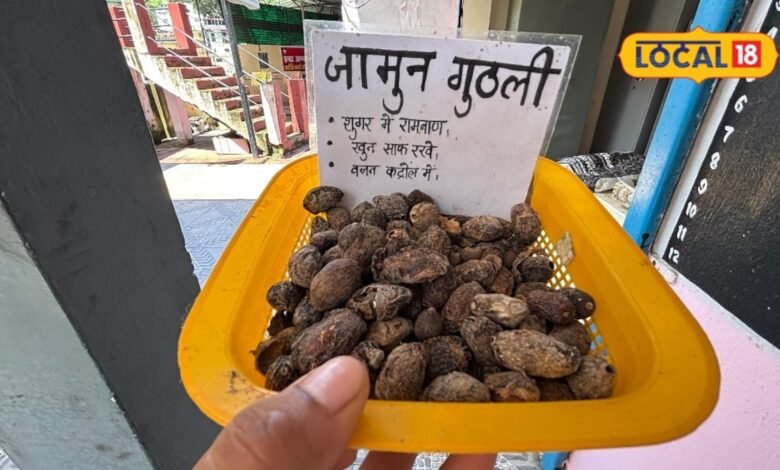 LOCAL 18
जामुन गुठली
• शुगर मे रामबाण,
• खुन साफ रखे,
• वजन कट्रोल में,
6
7
8
9
10
11
12